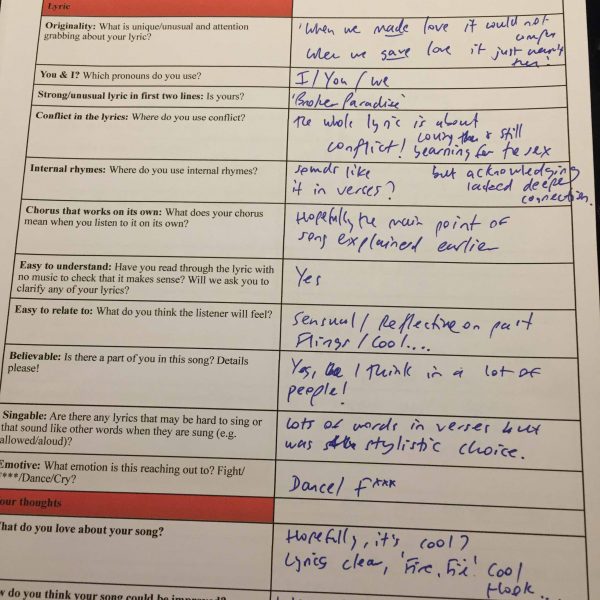 Lyric
Originality: What is unique/unusual and attention
grabbing about your lyric?
'When we made love it could not
When we gave love it just wasn't
You & I? Which pronouns do you use?
I/You/we
Strong/unusual lyric in first two lines: Is yours?
'Broken Paradise'
Conflict in the lyrics: Where do you use conflict?
The whole lyric is about
conflict! Loving & still
yearning for the sex
but acknowledging
lacked deeper
connection.
Internal rhymes: Where do you use internal rhymes?
sounds like
it in verses?
Chorus that works on its own: What does your chorus
mean when you listen to it on its own?
Hopefully the main point of
song explained earlier
Easy to understand: Have you read through the lyric with
no music to check that it makes sense? Will we ask you to
clarify any of your lyrics?
Yes
Easy to relate to: What do you think the listener will feel?
Sensual/Reflective on past
Flings/Cool....
Believable: Is there a part of you in this song? Details
please!
Yes, I think in a lot of
people!
Singable: Are there any lyrics that may be hard to sing or
that sound like other words when they are sung (e.g.
allowed/aloud)?
Lots of words in verses but
was stylistic choice.
Emotive: What emotion is this reaching out to? Fight/
F***/Dance/Cry?
Dance/F***
our thoughts
What do you love about your song?
Hopefully, it's cool?
Lyrics clear, 'Fire, Fire'. Cool
Hook...
w do you think your song could be improved?